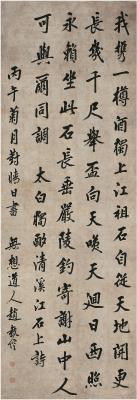 我攜一樽酒獨上江祖石自從天地開更
長幾千尺舉盃向天咲天迴日西照
永願坐此石長垂嚴陵釣寄謝山中人
可與爾同調 太白獨酌清溪江石上詩
丙午菊月對晴日書 無想道人趙執信